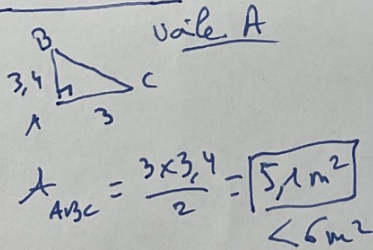 Voile A
B
3,4
C
A
3
A_ABC = 3×3,4/2 = 5,1 m²
< 6 m²